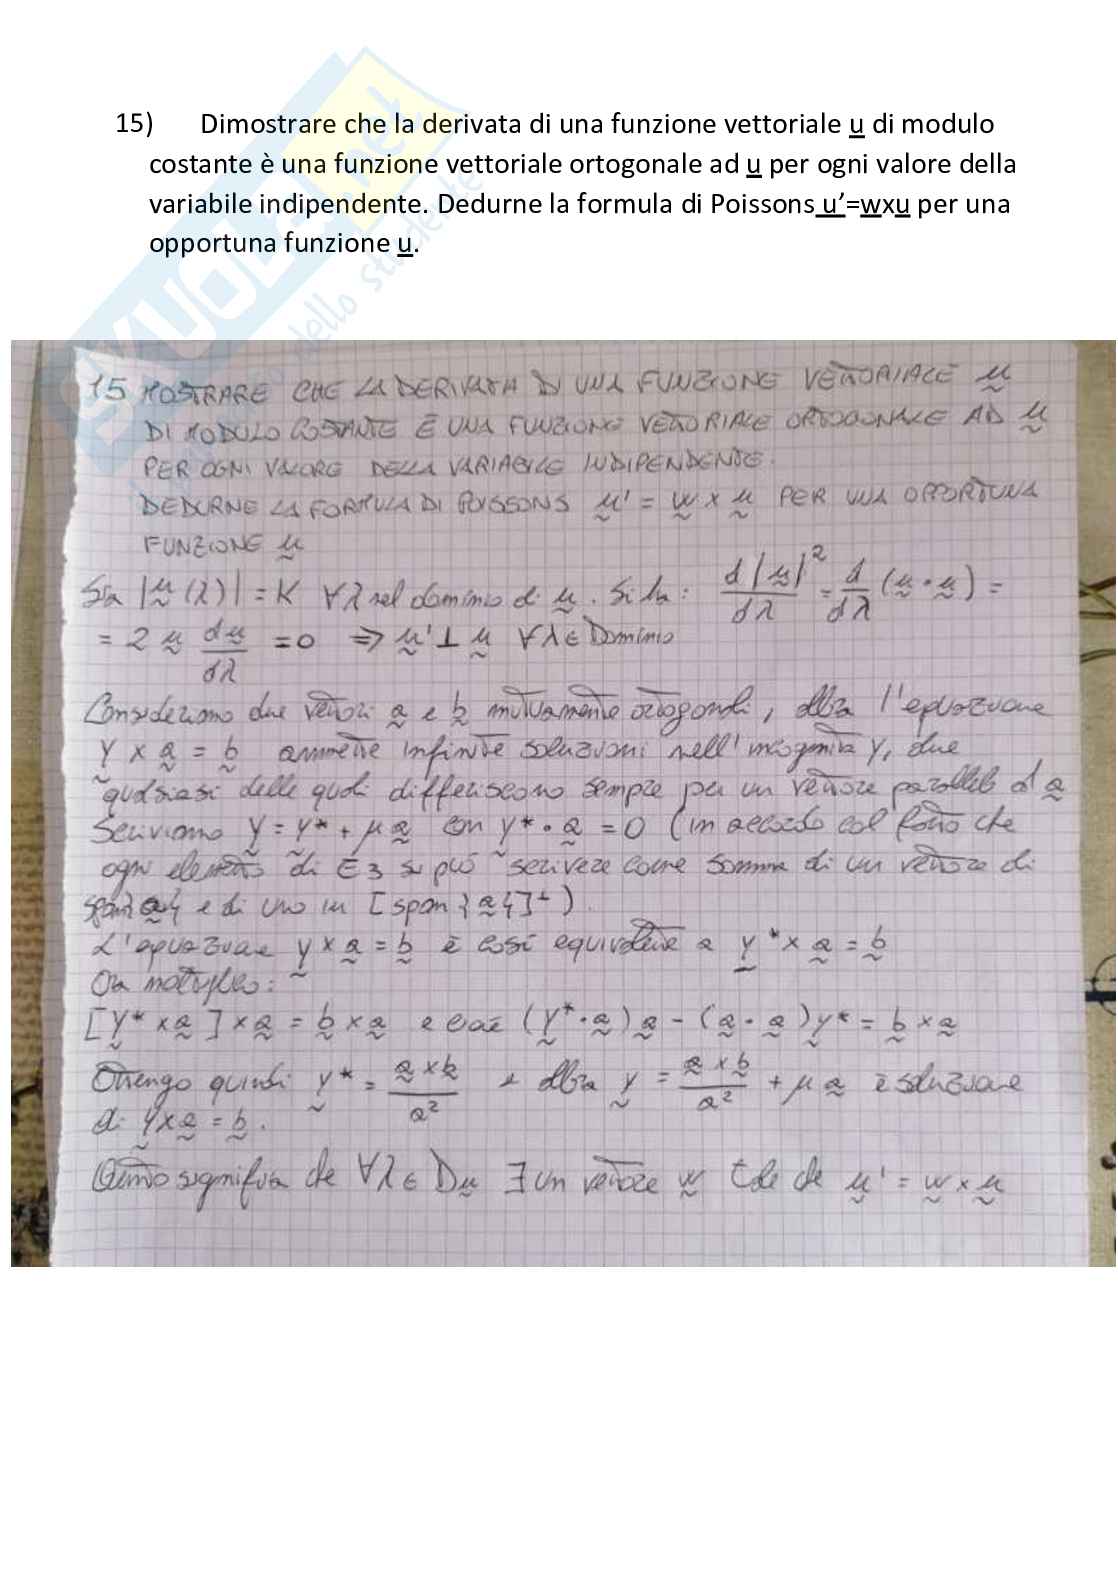 15) Dimostrare che la derivata di una funzione vettoriale u di modulo
costante è una funzione vettoriale ortogonale ad u per ogni valore della
variabile indipendente. Dedurne la formula di Poissons u’=wxu per una
opportuna funzione u.
15 MOSTRARE CHE LA DERIVATA DI UNA FUNZIONE VETTORIALE u
DI MODULO COSTANTE È UNA FUNZIONE VETTORIALE ORTOGONALE AD u
PER OGNI VALORE DELLA VARIABILE INDIPENDENTE.
DEDURNE LA FORMULA DI POISSONS u' = w x u PER UNA OPPORTUNA
FUNZIONE u
Sia |u(λ)| = K ∀λ nel dominio di u. Si ha: d|u|²/dλ = d/dλ (u · u) =
= 2 u du/dλ = 0 ⇒ u' ⊥ u ∀λ ∈ Dominio
Consideriamo due vettori a e b mutuamente ortogonali, allora l'equazione
y x a = b ammette infinite soluzioni nell'incognita y, due
qualsiasi delle quali differiscono sempre per un vettore parallelo ad a
Scriviamo y = y* + μ a con y* · a = 0 (in accordo col fatto che
ogni elemento di E3 si può scrivere come somma di un vettore di
span{a} e di uno in [span{a}]⊥).
L'equazione y x a = b è così equivalente a y* x a = b
Ora moltiplico:
[y* x a] x a = b x a e cioè (y* · a) a - (a · a) y* = b x a
Ottengo quindi y* = a x b / a² e allora y = a x b / a² + μ a è soluzione
di y x a = b.
Questo significa che ∀λ ∈ Du ∃ un vettore w tale che u' = w x u